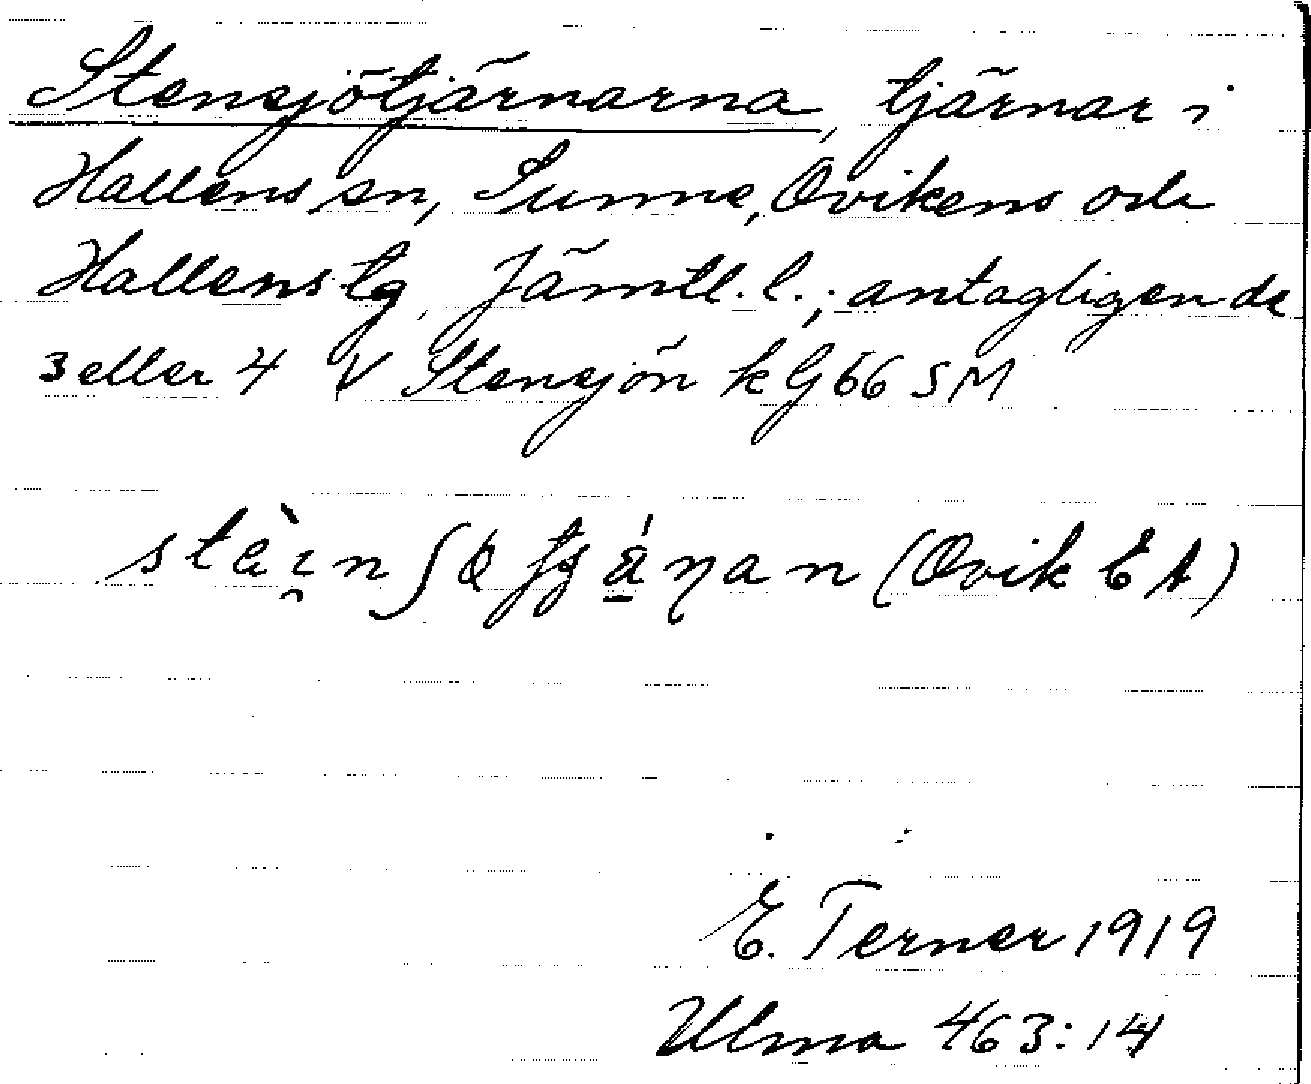 Stensjötjärnarna, tjärnar i
Hallens sn, Sunne, Ovikens och
Hallens tg, Jämtl. l.; antagligen de
3 eller 4 V Stensjön k G 66 SM
(Ovik E A)
E. Terner 1919
Ulma 463:14